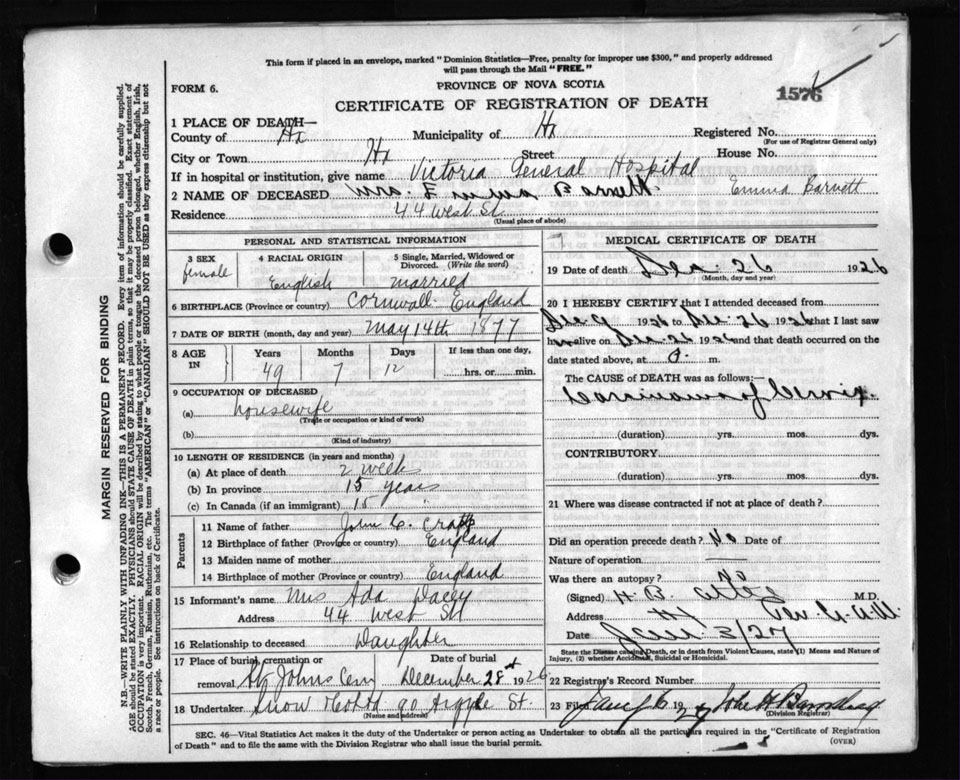 This form if placed in an envelope, marked "Dominion Statistics—Free, penalty for improper use $300," and properly addressed
will pass through the Mail "FREE."
FORM 6.
PROVINCE OF NOVA SCOTIA
1576
CERTIFICATE OF REGISTRATION OF DEATH
1 PLACE OF DEATH—
County of Hx Municipality of Hx Registered No.
(For use of Registrar General only)
City or Town Hx Street House No.
If in hospital or institution, give name Victoria General Hospital
2 NAME OF DECEASED Mrs. Emma Barnett. Emma Barnett
Residence 44 West St.
(Usual place of abode)
PERSONAL AND STATISTICAL INFORMATION
3 SEX female
4 RACIAL ORIGIN English
5 Single, Married, Widowed or Divorced. (Write the word) married
6 BIRTHPLACE (Province or country) Cornwall England
7 DATE OF BIRTH (month, day and year) May 14th 1877
8 AGE IN Years Months Days If less than one day,
49 7 12 hrs. or min.
9 OCCUPATION OF DECEASED
(a) housewife
(Trade or occupation or kind of work)
(b)
(Kind of industry)
10 LENGTH OF RESIDENCE (in years and months)
(a) At place of death 2 week
(b) In province 15 years
(c) In Canada (if an immigrant) 15 "
Parents
11 Name of father John C.
12 Birthplace of father (Province or country) England
13 Maiden name of mother
14 Birthplace of mother (Province or country) England
15 Informant's name Mrs Ada
Address 44 West St
16 Relationship to deceased Daughter
17 Place of burial, cremation or removal St Johns Cem Date of burial December 28 1926
18 Undertaker Snow 90 Argyle St.
(Name and address)
MEDICAL CERTIFICATE OF DEATH
19 Date of death Dec. 26 1926
(Month, day and year)
20 I HEREBY CERTIFY that I attended deceased from
Dec 9 1926 to Dec 26 1926 that I last saw
alive on Dec 26 1926 and that death occurred on the
date stated above, at m.
The CAUSE OF DEATH was as follows:—
Carcinoma of Cervix.
(duration) yrs. mos. dys.
CONTRIBUTORY
(duration) yrs. mos. dys.
21 Where was disease contracted if not at place of death?
Did an operation precede death? No Date of
Nature of operation
Was there an autopsy? No
(Signed) H. B. M.D.
Address Hx
Date Jan. 3/27
State the Disease causing Death, or in death from Violent Causes, state (1) Means and Nature of
Injury, (2) whether Accidental, Suicidal or Homicidal.
22 Registrar's Record Number
23 Filed Jany 6 1927 John H
(Division Registrar)
SEC. 46—Vital Statistics Act makes it the duty of the Undertaker or person acting as Undertaker to obtain all the particulars required in the "Certificate of Registration
of Death" and to file same with the Division Registrar who shall issue the burial permit.
(OVER)
MARGIN RESERVED FOR BINDING
N.B.—WRITE PLAINLY WITH UNFADING INK—THIS IS A PERMANENT RECORD. Every item of information should be carefully supplied.
AGE should be stated EXACTLY. PHYSICIANS should STATE CAUSE OF DEATH in plain terms, so that it may be properly classified. Exact statement of
OCCUPATION is very important. RACIAL ORIGIN will be described by stating to what people or tongue the deceased person belonged, whether English, Irish,
Scotch, French, German, Russian, Ruthenian, etc. The terms "AMERICAN" or "CANADIAN" SHOULD NOT BE USED as they express citizenship but not
a race or people. See instructions on back of Certificate.